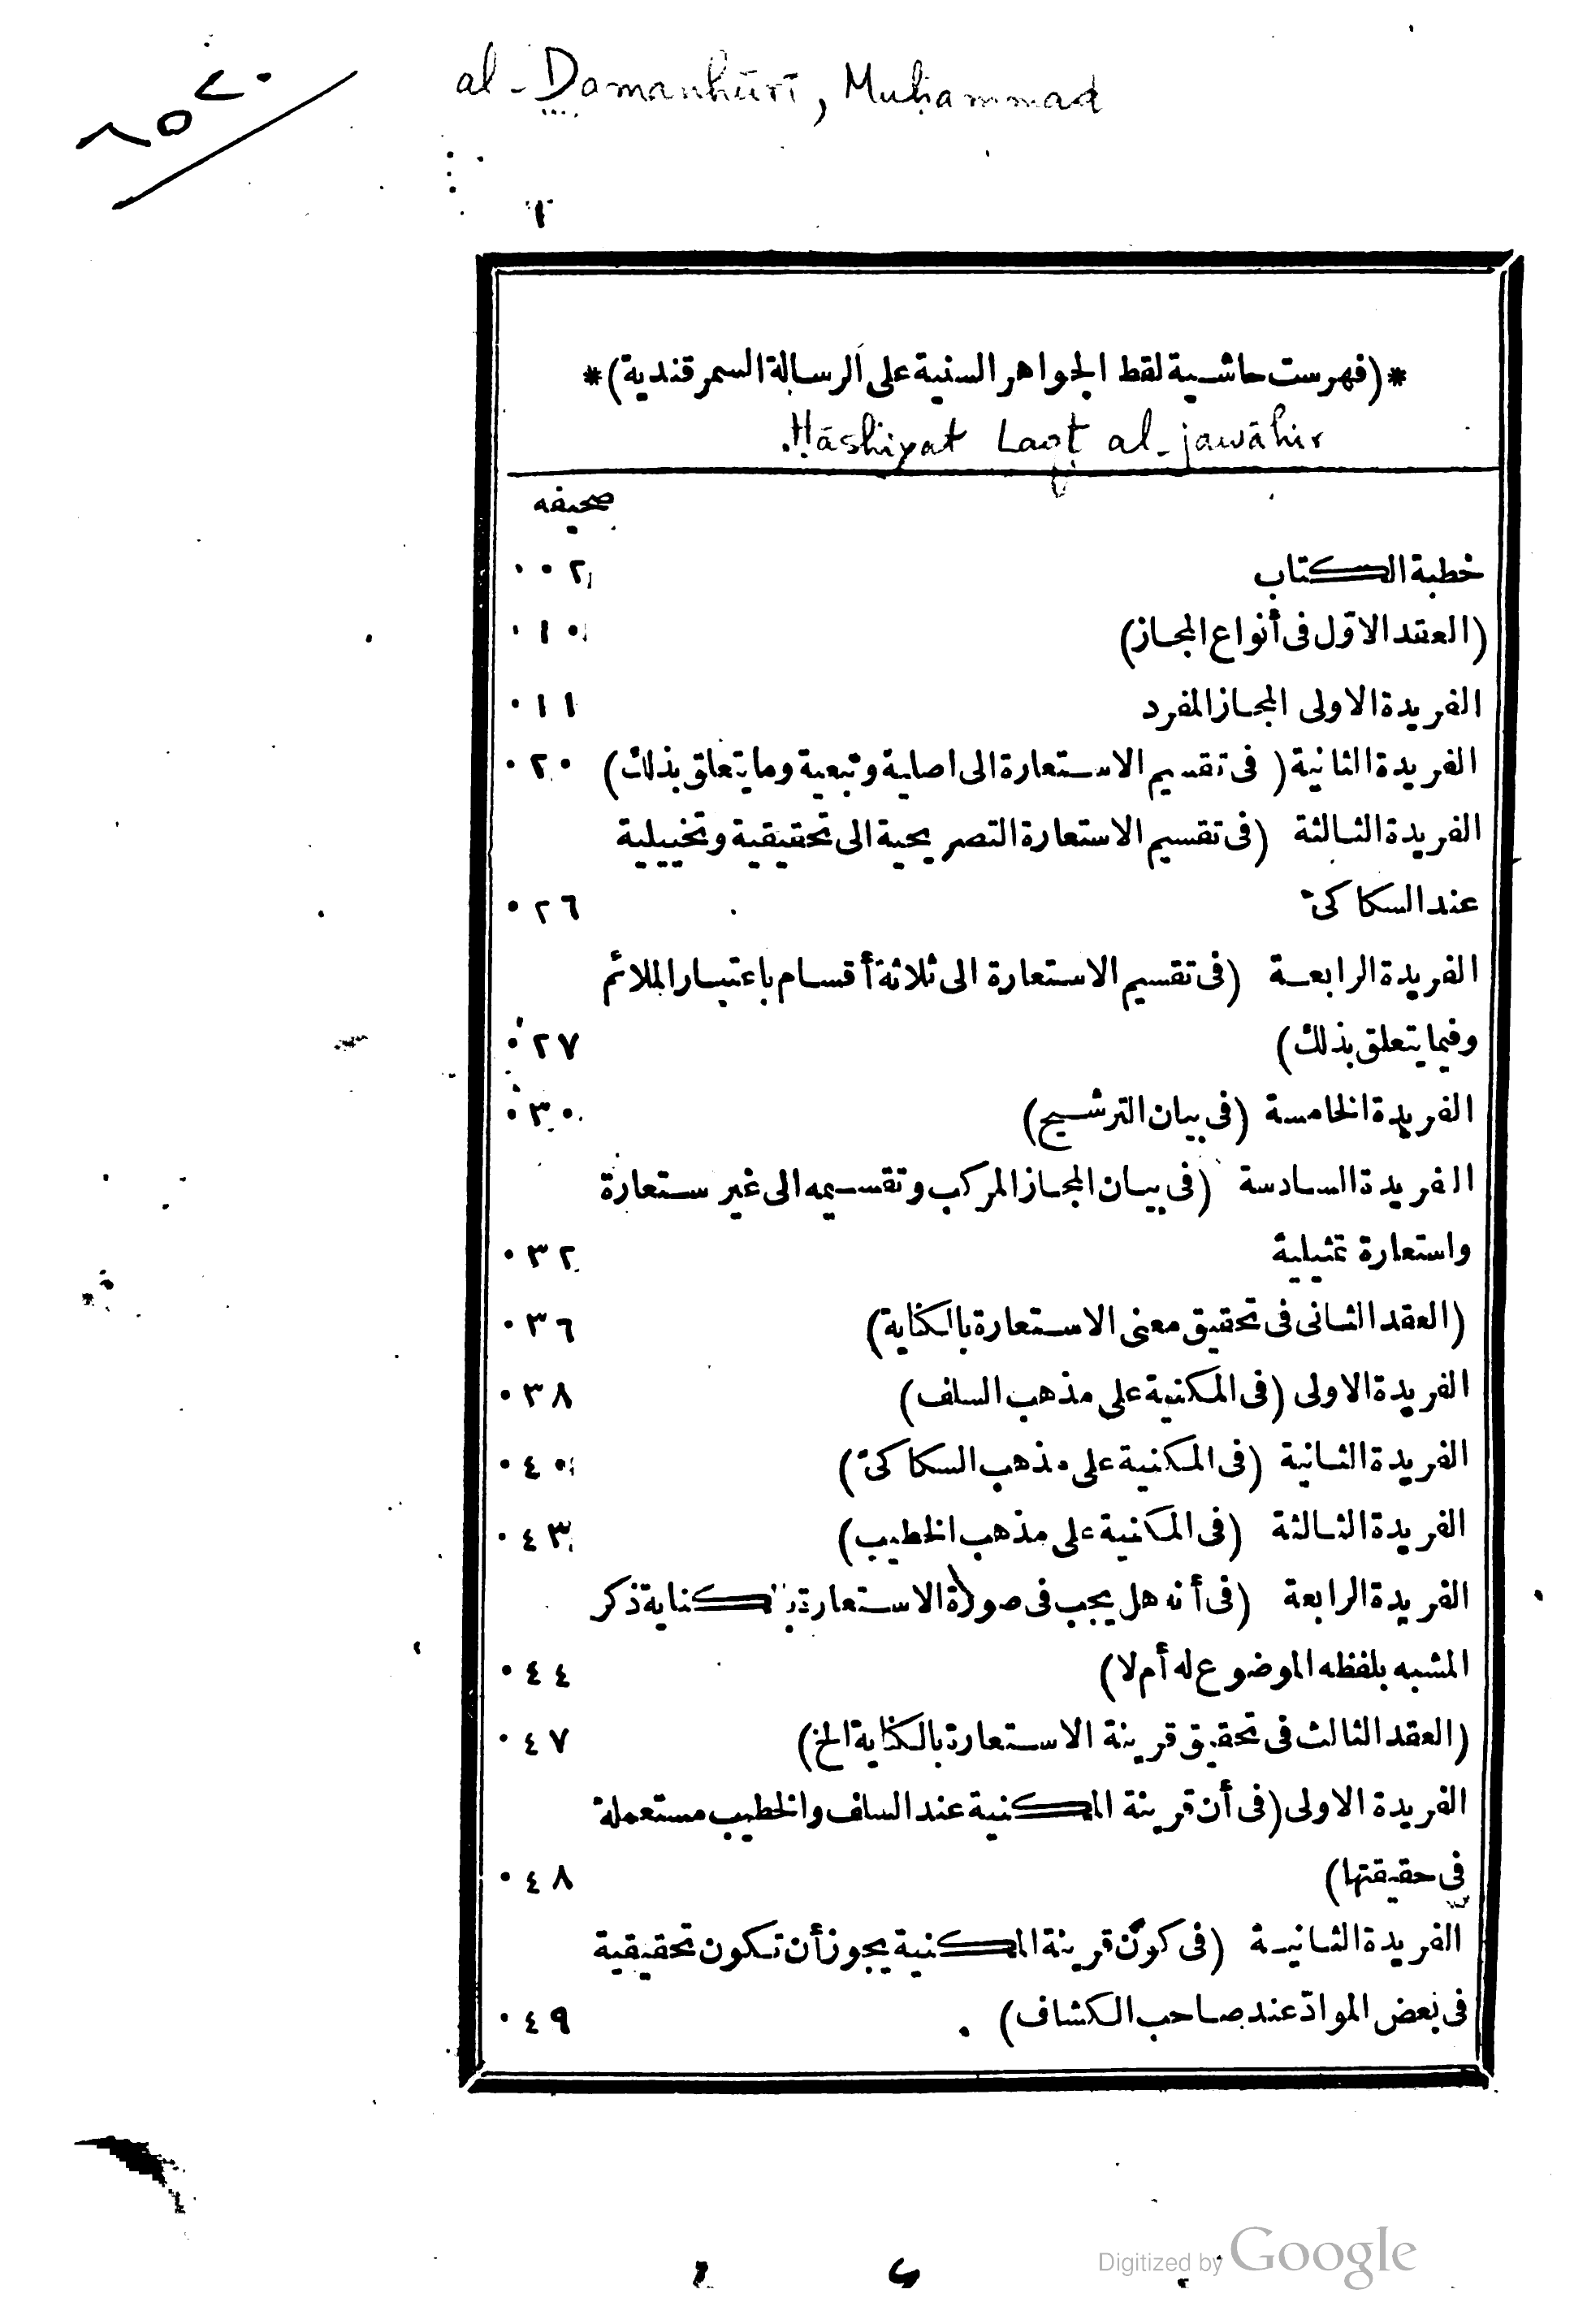 al-Damanhūrī, Muḥammad
*(فهرست حاشية لقط الجواهر السنية على الرسالة السمرقندية)*
Ḥāshiyat Laqṭ al-jawāhir
صحيفه
خطبة الكتاب ٠٠٢
(العقد الاوّل فى أنواع المجاز) ٠١٠
الفريدة الاولى المجاز المفرد ٠١١
الفريدة الثانية (فى تقسيم الاستعارة الى اصلية وتبعية وما يتعلق بذلك) ٠٢٠
الفريدة الثالثة (فى تقسيم الاستعارة التصريحية الى تحقيقية وتخييلية
عند السكاكىّ ٠٢٦
الفريدة الرابعة (فى تقسيم الاستعارة الى ثلاثة أقسام باعتبار الملائم
وفيما يتعلق بذلك) ٠٢٧
الفريدة الخامسة (فى بيان الترشيح) ٠٣٠
الفريدة السادسة (فى بيان المجاز المركب وتقسيمه الى غير ستعارة
واستعارة تمثيلية ٠٣٢
(العقد الثانى فى تحقيق معنى الاستعارة بالكناية) ٠٣٦
الفريدة الاولى (فى المكنية على مذهب السلف) ٠٣٨
الفريدة الثانية (فى المكنية على مذهب السكاكىّ) ٠٤٠
الفريدة الثالثة (فى المكنية على مذهب الخطيب) ٠٤٣
الفريدة الرابعة (فى أنه هل يجب فى صورة الاستعارة بالكناية ذكر
المشبه بلفظه الموضوع له أم لا) ٠٤٤
(العقد الثالث فى تحقيق قرينة الاستعارة بالكناية الخ) ٠٤٧
الفريدة الاولى (فى أن قرينة المكنية عند السلف والخطيب مستعملة
فى حقيقتها) ٠٤٨
الفريدة الثانية (فى كون قرينة المكنية يجوز أن تكون تحقيقية
فى بعض الموادّ عند صاحب الكشاف) ٠٤٩
Digitized by Google